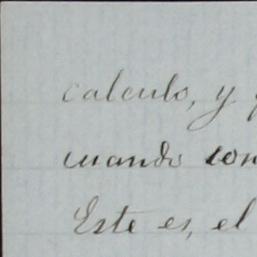 calculo, y
cuando con
Este es, el